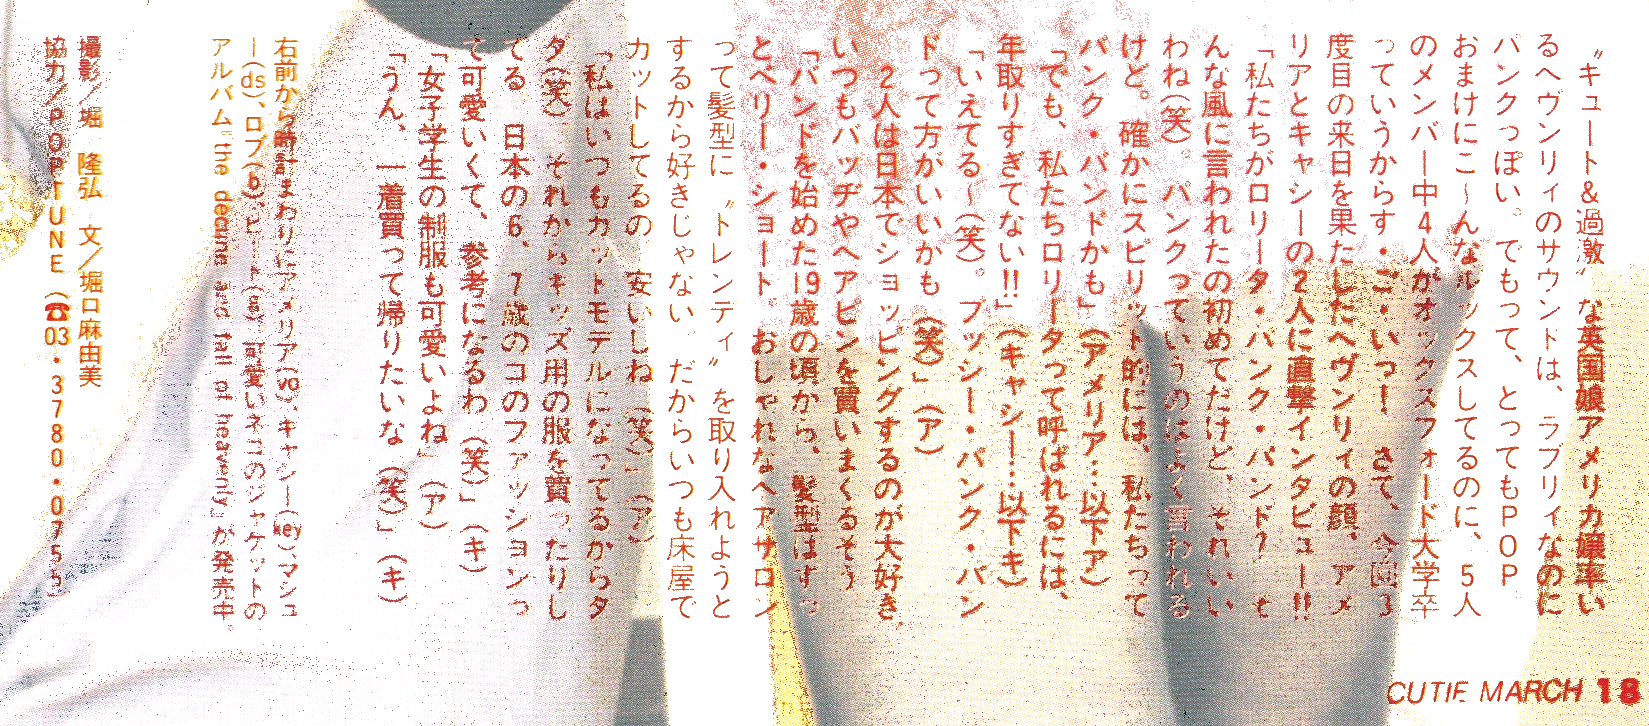 〝キュート＆過激〟な英国娘アメリカ嬢率い
るヘヴンリィのサウンドは、ラブリィなのに
パンクっぽい。でもって、とってもＰＯＰ
おまけにこ〜んなルックスしてるのに、５人
のメンバー中４人がオックスフォード大学卒
っていうからす・ご・いっ！　さて、今回３
度目の来日を果たしたヘヴンリィの顔、アメ
リアとキャシーの２人に直撃インタビュー!!
「私たちがロリータ・パンク・バンド？　そ
んな風に言われたの初めてだけど、それいい
わね（笑）。パンクっていうのはよく言われる
けど。確かにスピリット的には、私たちって
パンク・バンドかも」（アメリア…以下ア）
「でも、私たちロリータって呼ばれるには、
年取りすぎてない!!」（キャシー…以下キ）
「いえてる〜（笑）。プッシー・パンク・バン
ドって方がいいかも（笑）」（ア）
　２人は日本でショッピングするのが大好き。
いつもバッヂやヘアピンを買いまくるそう
「バンドを始めた19歳の頃から、髪型はずっ
とベリー・ショート。おしゃれなヘアサロン
って髪型に〝トレンディ〟を取り入れようと
するから好きじゃない。だからいつも床屋で
カットしてるの　安いしね（笑）」（ア）
「私はいつもカットモデルになってるからタ
ダ（笑）。それからキッズ用の服を買ったりし
てる　日本の６、７歳のコのファッションっ
て可愛いくて、参考になるわ（笑）」（キ）
「女子学生の制服も可愛いよね」（ア）
「うん、一着買って帰りたいな（笑）」（キ）
右前から時計まわりにアメリア(vo)、キャシー(key)、マシュ
ー(ds)、ロブ(b)、ピート(g)。可愛いネコのジャケットの
アルバム『the decline and fall of heavenly』が発売中。
撮影／堀　隆弘　文／堀口麻由美
協力／POP TUNE（☎03・3780・0755）
CUTIE MARCH 18